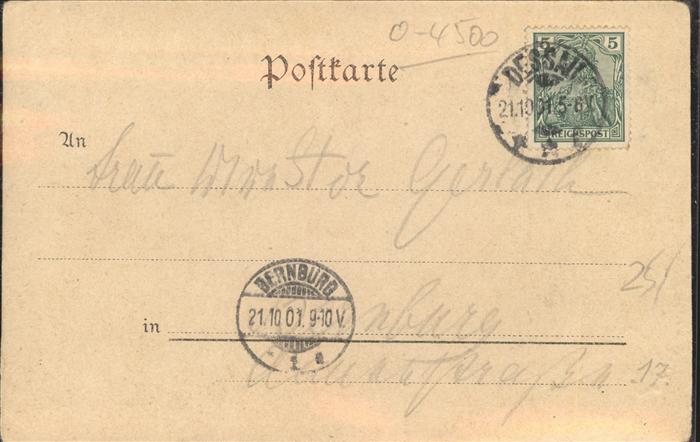 O-4500
Postkarte
5 5
DESSAU
21.10.01.5-6V.
REICHSPOST
An
Frau Direktor Gerlach
BERNBURG
21.10.01.9-10V.
1 a
25/
in nburg
17